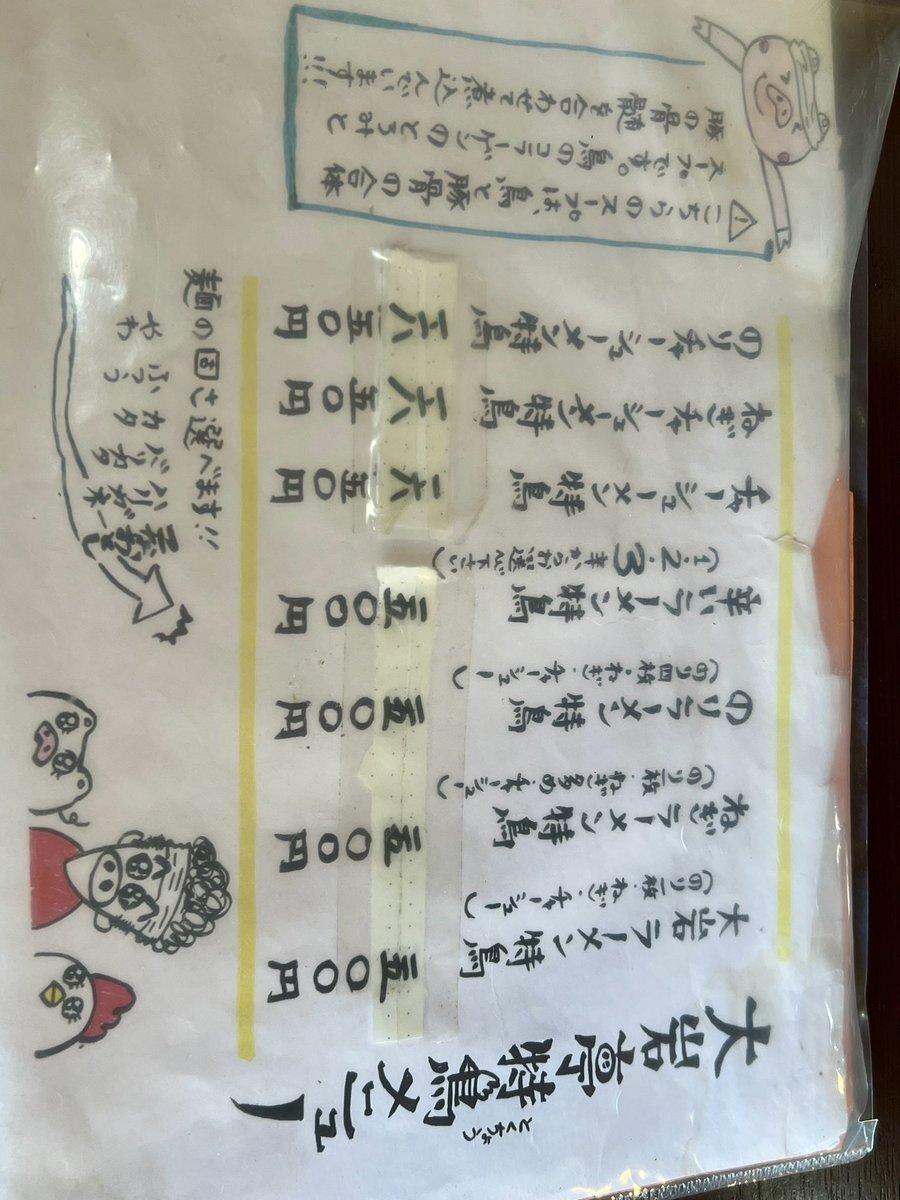 大岩亭特鳥メニュー
とくちょう
大岩ラーメン特鳥 一五〇〇円
(のり一枚・ねぎ・チャーシュー)
ねぎラーメン特鳥 一五〇〇円
(のり一枚・ねぎ多め・チャーシュー)
のりラーメン特鳥 一五〇〇円
(のり四枚・ねぎ・チャーシュー)
辛いラーメン特鳥 一五〇〇円
(1・2・3辛からお選び下さい)
チャーシューメン特鳥 一六五〇円
ねぎチャーシューメン特鳥 一六五〇円
のりチャーシューメン特鳥 一六五〇円
こちらのスープは、鳥と豚骨の合体
スープです。鳥のコラーゲンのとろみと
豚の骨髄を合わせて煮込んでいます!!!
麺の固さ選べます!!
やわ ふつう カタ バリカタ ハリガネ 粉おとし